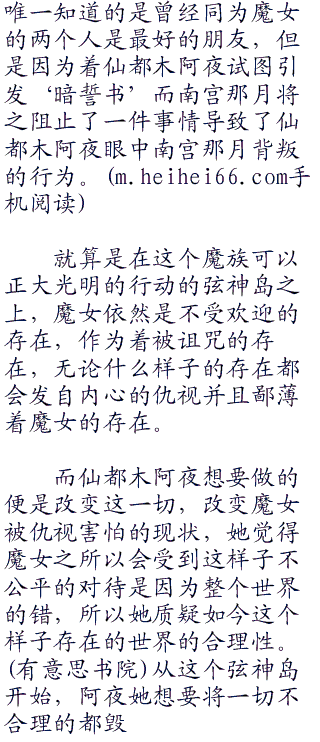 唯一知道的是曾经同为魔女
的两个人是最好的朋友，但
是因为着仙都木阿夜试图引
发‘暗誓书’而南宫那月将
之阻止了一件事情导致了仙
都木阿夜眼中南宫那月背叛
的行为。(m.heihei66.com手
机阅读)
就算是在这个魔族可以
正大光明的行动的弦神岛之
上，魔女依然是不受欢迎的
存在，作为着被诅咒的存
在，无论什么样子的存在都
会发自内心的仇视并且鄙薄
着魔女的存在。
而仙都木阿夜想要做的
便是改变这一切，改变魔女
被仇视害怕的现状，她觉得
魔女之所以会受到这样子不
公平的对待是因为整个世界
的错，所以她质疑如今这个
样子存在的世界的合理性。
(有意思书院)从这个弦神岛
开始，阿夜她想要将一切不
合理的都毁